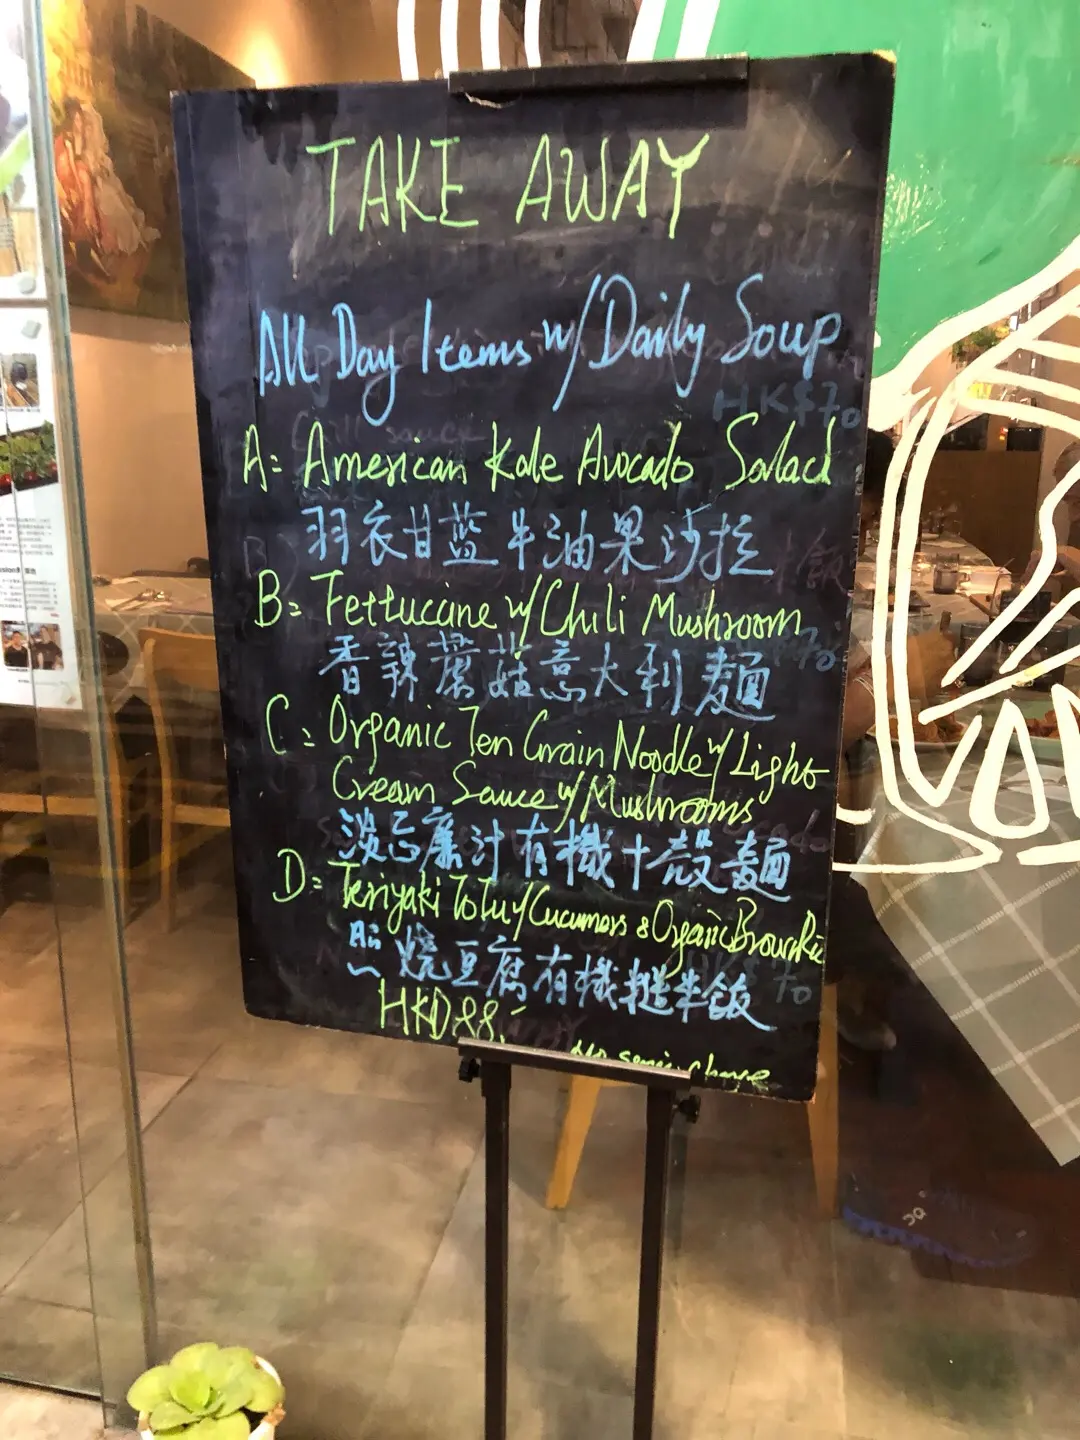 TAKE AWAY
All Day Items w/ Daily Soup
HK$70
A= American Kale Avocado Salad
羽衣甘蓝牛油果沙拉
B= Fettuccine w/ Chili Mushroom
香辣蘑菇意大利麵
C= Organic Ten Grain Noodle w/ Light
Cream Sauce w/ Mushrooms
淡忌廉汁有機十殼麵
D= Teriyaki Tofu w/ Cucumbers & Organic Brown Ri
烧豆腐有機糙米飯
HKD88.-
No service charge